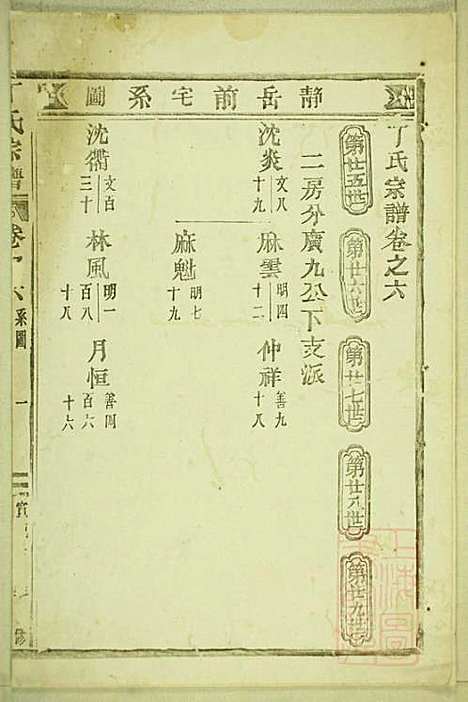 靜岳前宅系圖
丁氏宗譜卷之六
第廿五世
第廿六世
第廿七世
第廿八世
第廿九世
二房分廣九公下支派
沈炎 文八十九
麻雲 明四十二
仲祥 善九十八
麻魁 明七十九
沈衢 文百三十
林風 明一百八十八
月恒 善四百六十六
丁氏宗譜
卷之六
系圖
一